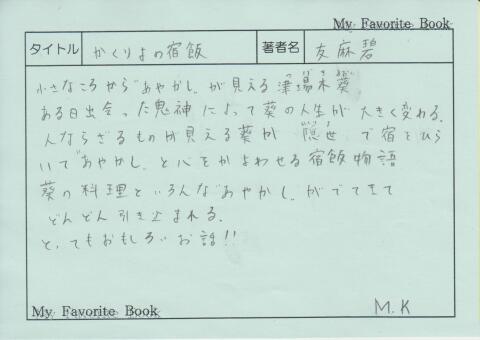 My Favorite Book
タイトル かくりよの宿飯 著者名 友麻碧
小さなころから"あやかし"が見える津場木葵
ある日出会った鬼神によって葵の人生が大きく変わる.
人ならざるものが見える葵が 隠世 で宿をひら
いて"あやかし"と心をかよわせる宿飯物語
葵の料理といろんな"あやかし"がでてきて
どんどん引き込まれる.
と,てもおもしろいお話!!
My Favorite Book M.K